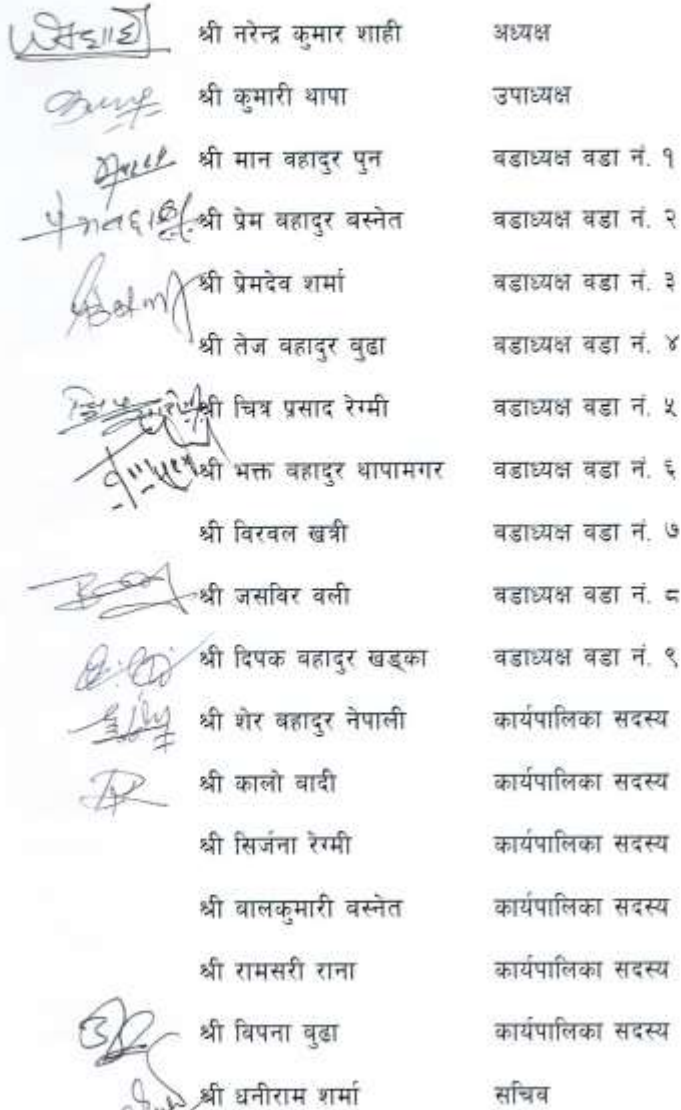 श्री नरेन्द्र कुमार शाही अध्यक्ष
श्री कुमारी थापा उपाध्यक्ष
श्री मान वहादुर पुन वडाध्यक्ष वडा नं. १
श्री प्रेम वहादुर वस्नेत वडाध्यक्ष वडा नं. २
श्री प्रेमदेव शर्मा वडाध्यक्ष वडा नं. ३
श्री तेज वहादुर वुढा वडाध्यक्ष वडा नं. ४
श्री चित्र प्रसाद रेग्मी वडाध्यक्ष वडा नं. ५
श्री भक्त वहादुर थापामगर वडाध्यक्ष वडा नं. ६
श्री विरवल खत्री वडाध्यक्ष वडा नं. ७
श्री जसविर वली वडाध्यक्ष वडा नं. ८
श्री दिपक वहादुर खड्का वडाध्यक्ष वडा नं. ९
श्री शेर वहादुर नेपाली कार्यपालिका सदस्य
श्री कालो वादी कार्यपालिका सदस्य
श्री सिर्जना रेग्मी कार्यपालिका सदस्य
श्री वालकुमारी वस्नेत कार्यपालिका सदस्य
श्री रामसरी राना कार्यपालिका सदस्य
श्री विपना वुढा कार्यपालिका सदस्य
श्री धनीराम शर्मा सचिव